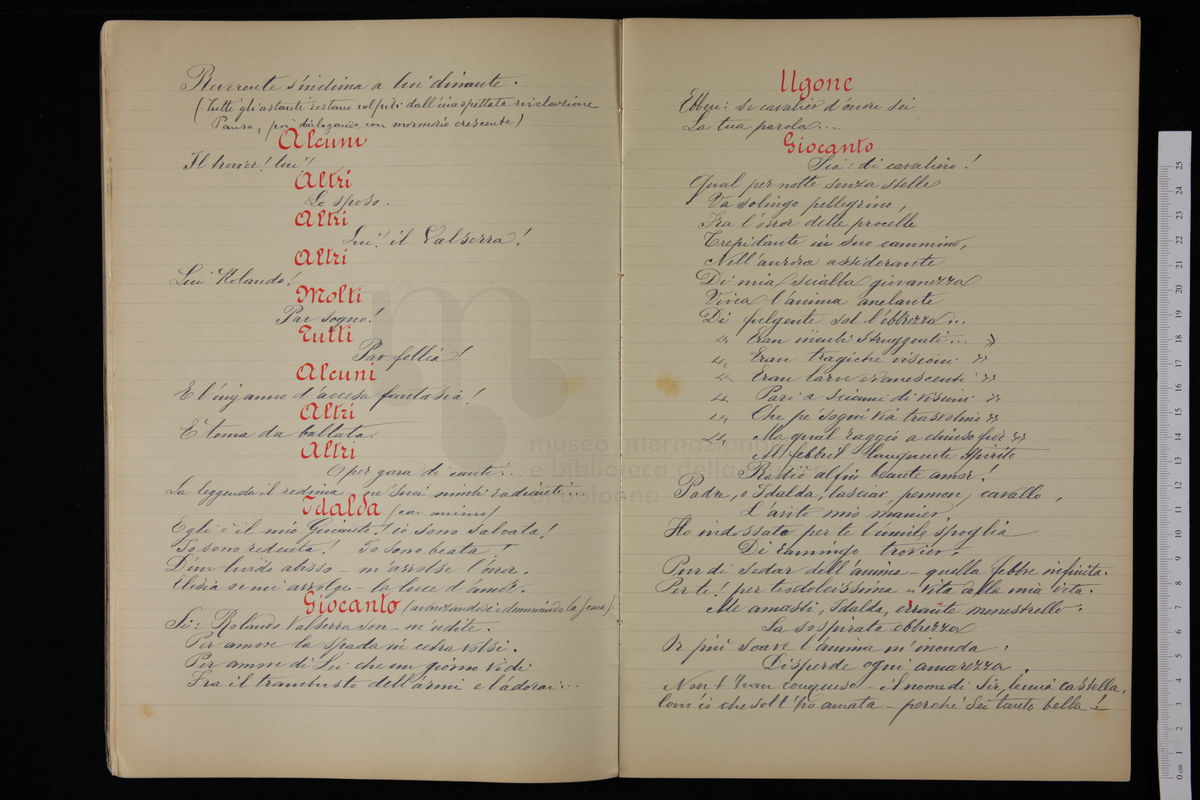 Reverente s'inclina a lui dinante.
(Tutti gli astanti restano colpiti dall'inaspettata rivelazione
Pausa, poi dialogando con mormorio crescente)
Alcuni
Il trovier! lui!
Altri
Lo sposo.
Altri
Lui! il Valserra!
Altri
Lui Rolando!
Molti
Par sogno!
Tutti
Par follia!
Alcuni
È l'inganno d'accesa fantasia!
Altri
È tema da ballata
Altri
O per gara di canti...
La leggenda il redima ne' suoi nimbi radianti
Idalda (con anima)
Egli è il mio Giocanto! io sono salvata!
Io sono redenta! Io sono beata!
D'un lurido abisso – m'arrise l'orror.
Elisia or mi avvolge – la luce d'amor.
Giocanto (avanzandosi e dominando la scena)
Sì: Rolando Valserra son – m'udite.
Per amore la spada in cetra volsi.
Per amore di Lei che un giorno vidi
Fra il trambusto dell'armi e l'adorai...
Ugone
Ebben: se cavalier d'onore sei
La tua parola...
Giocanto
Sia: di cavaliero!
Qual per notte senza stelle
Va solingo pellegrino,
Fra l'orror delle procelle
Trepidante in suo cammino,
Nell'aurora assiderante
Di mia scialba giovanezza
Vivea l'anima anelante
Di fulgente sol l'ebbrezza...
« Eran incubi struggenti... »
« Eran tragiche visioni »
« Eran larve evanescenti »
« Pari a sciami di visioni »
« Che pe' sogni via trasvolano »
« Ma qual raggio a chiuso fior »
Al febbril languente spirito
Radiò alfin beante amor!
Padre, o Idalda, lasciai, pennon, cavallo,
L'avito mio manier,
Ho indossato per te l'umile spoglia
Di ramingo trovier
Pur di sedar dell'anima – quella febbre infinita.
Per te! per te dolcissima – vita alla mia vita.
Me amasti, Idalda, errante menestrello.
La sospirata ebbrezza
Or più soave l'anima m'inonda,
Disperde ogni amarezza.
Non t'han conquiso – il nome di Sir, le mia castella,
Com'io che sol t'ho amata – perchè sei tanto bella!
museo internazionale
e biblioteca della
di bologna